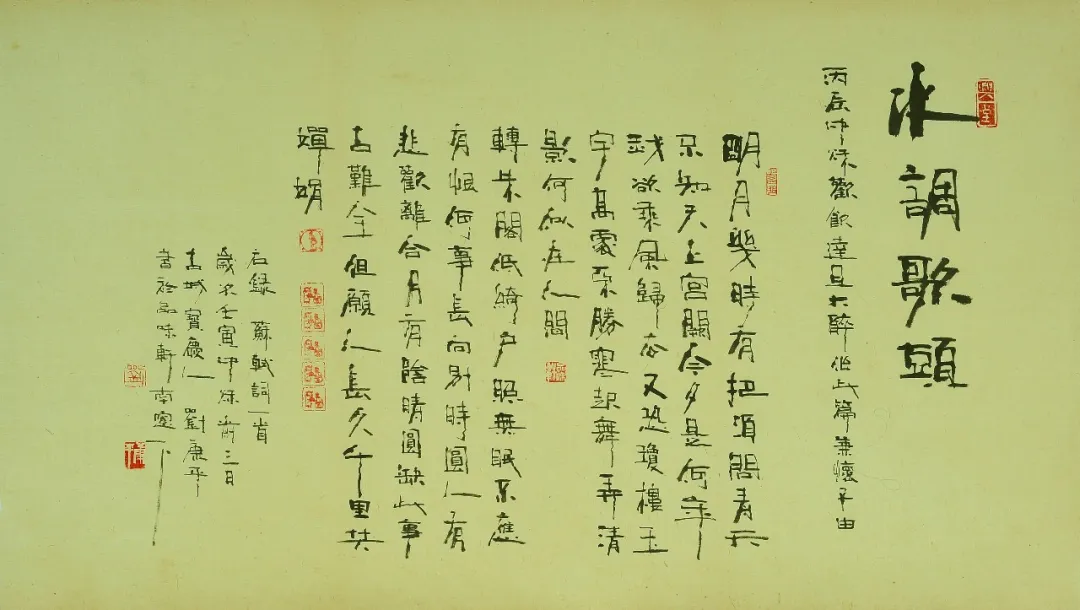 水調歌頭
丙辰中秋歡飲達旦大醉作此篇兼懷子由
明月幾時有把酒問青天
不知天上宮闕今夕是何年
我欲乘風歸去又恐瓊樓玉
宇高處不勝寒起舞弄清
影何似在人間
轉朱閣低綺户照無眠不應
有恨何事長向別時圓人有
悲歡離合月有陰晴圓缺此事
古難全但願人長久千里共
嬋娟
右録 蘇軾詞一首
歲次壬寅中秋前三日
古城寶慶人 劉康平
書於品味軒南窗下